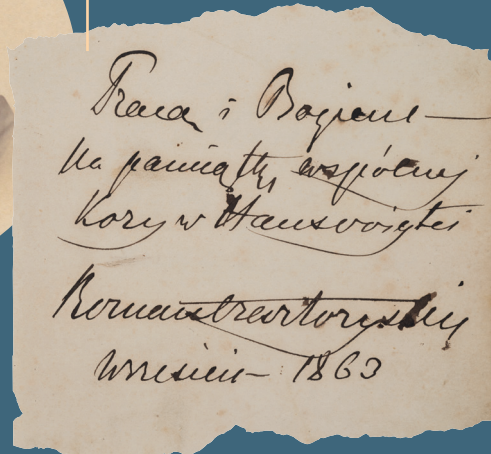 Pracą i Bogiem —
Na pamiątkę wspólnej
Kozy w Hausvoigtei
Roman Czartoryski
Wrzesień – 1863